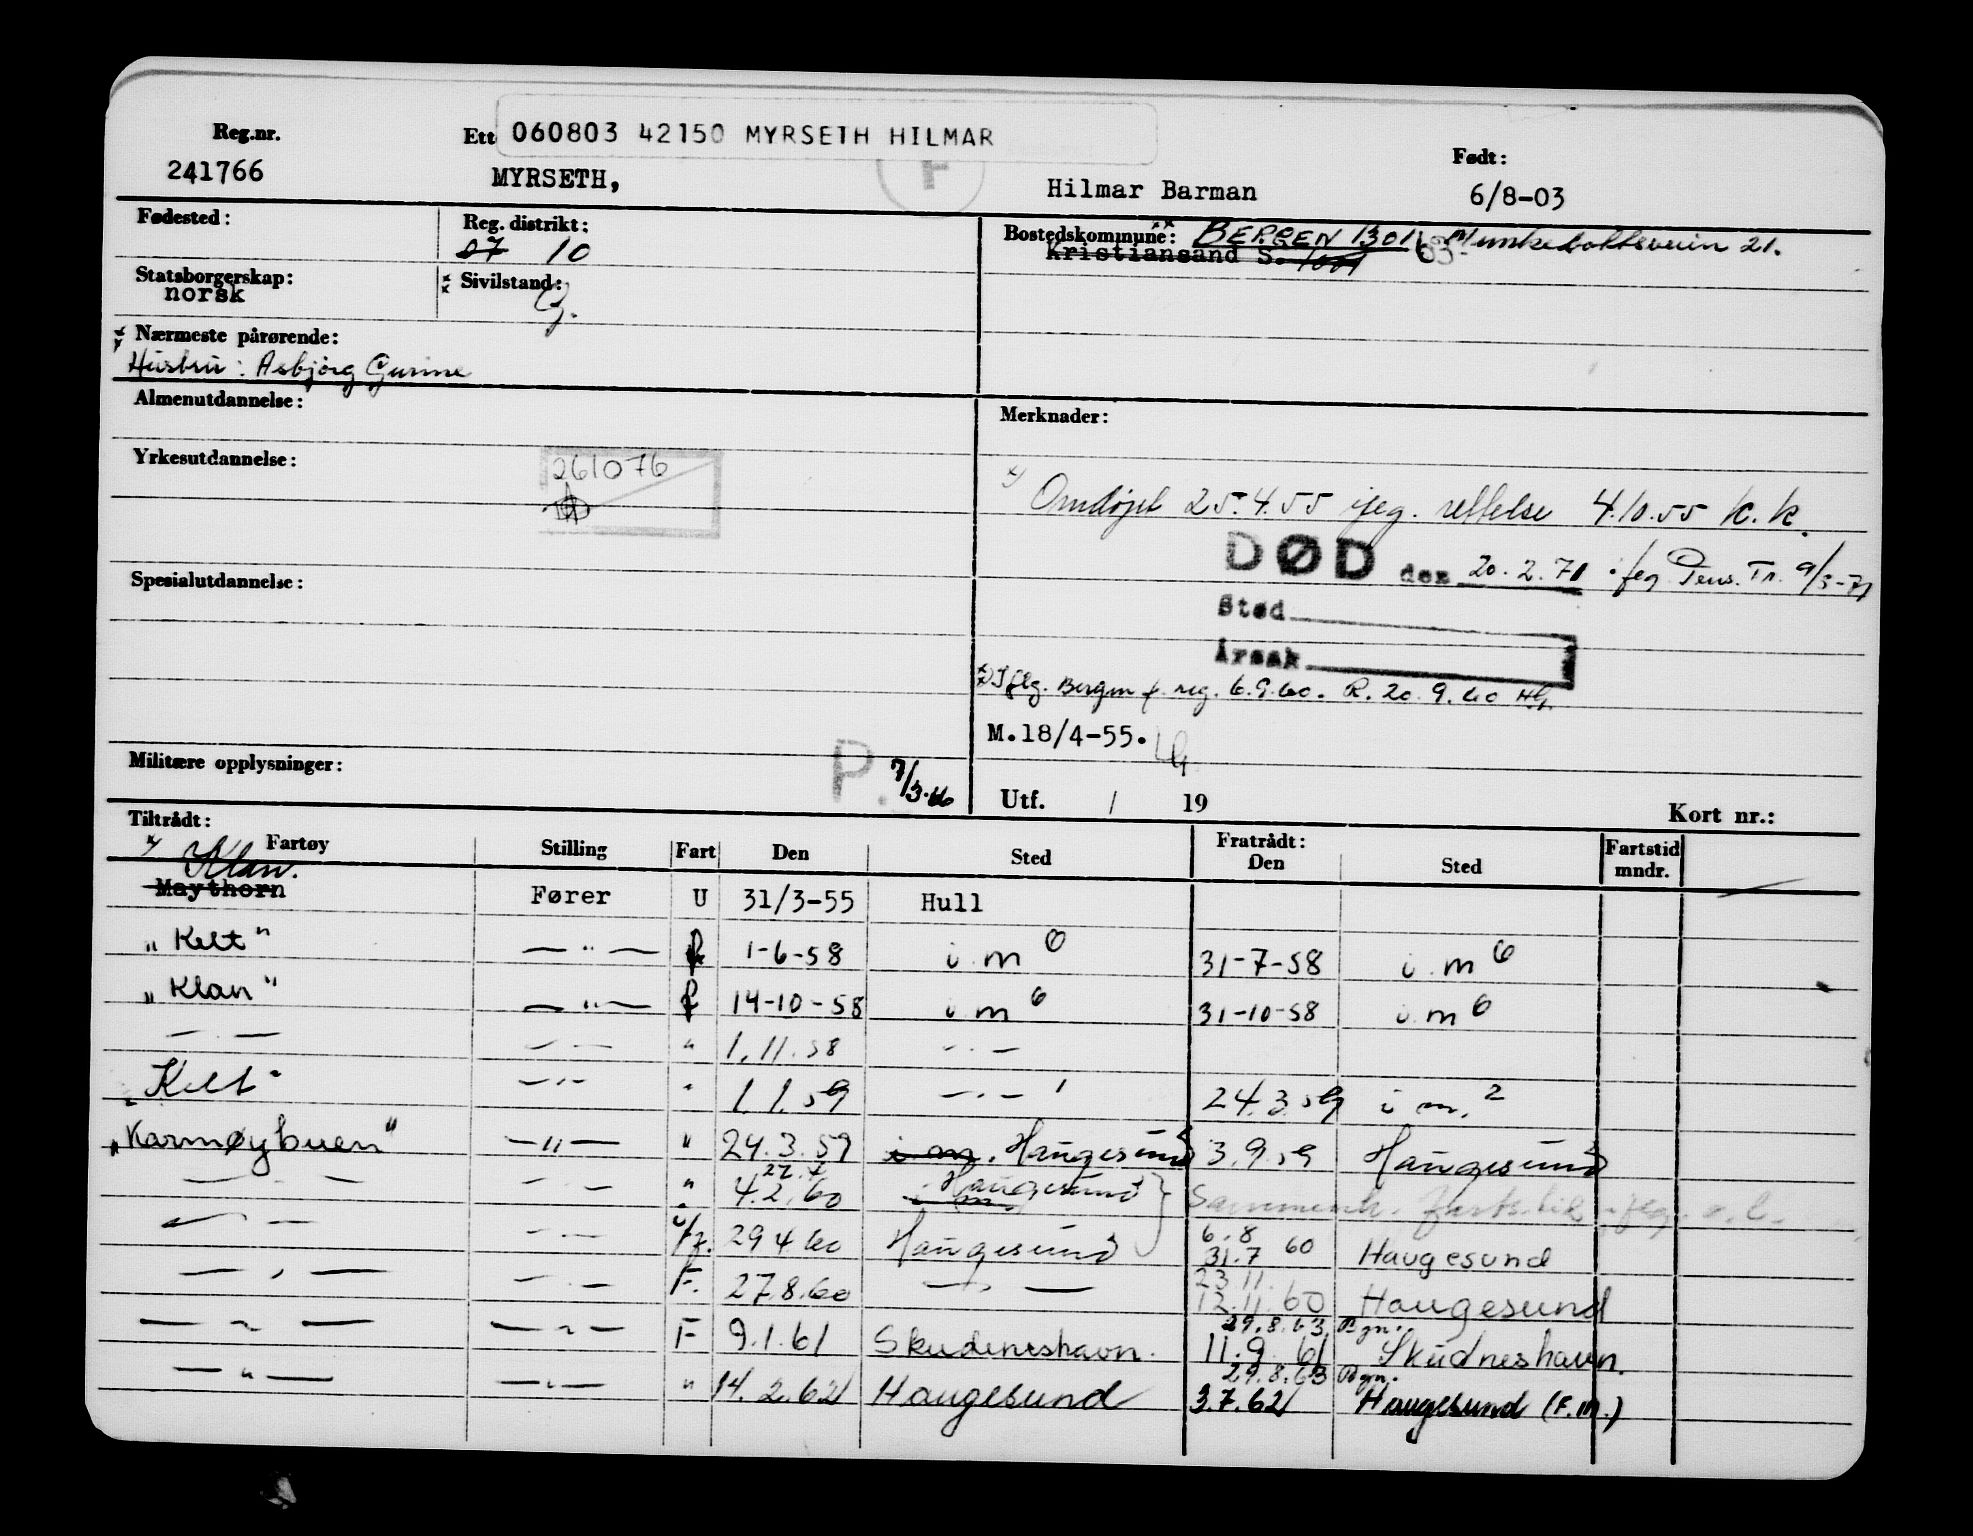 Reg.nr. Ett 060803 42150 MYRSETH HILMAR Født:
241766 MYRSETH, F Hilmar Barman 6/8-03
Fødested: Reg. distrikt: Bostedskommune: BERGEN 1301 Munkebottsveien 21.
07 10 Kristiansand S. 1001
Statsborgerskap: Sivilstand:
norsk G.
Nærmeste pårørende:
Hustru: Asbjörg Gurine
Almenutdannelse: Merknader:
Yrkesutdannelse: 261076
x) Omdøpt 25.4.55 ifeg. rettelse 4.10.55 K.K.
DØD den 20.2.71 ifeg. Pens. Tr. 9/3-71
Spesialutdannelse: Sted
Årsak
Iflg. Bergen f. reg. 6.9.60. R. 20.9.60 HG.
M.18/4-55.
Militære opplysninger: P. 7/3-66 Utf. / 19 Kort nr.:
Tiltrådt: Fratrådt:
Fartøy Stilling Fart Den Sted Den Sted Fartstid mndr.
x) Klan.
Maythorn Fører U 31/3-55 Hull
"Kelt" — " — f 1-6-58 i m 6 31-7-58 i m 6
"Klan" — " — f 14-10-58 i m 6 31-10-58 i m 6
— " — — " — " 1.11.58 — " —
"Kelt" — " — " 1.1.59 — " — 1 24.3.59 i m. 2
"Karmøybuen" — " — " 24.3.59 i m. Haugesund 3.9.59 Haugesund
27.7
— " — — " — " 4.2.60 i m Haugesund } Sammenh. fartstid iflg. s.b.
6.8
— " — — " — U/f. 29.4.60 Haugesund 31.7 60 Haugesund
23.11.
— " — — " — F. 27.8.60 — " — 12.11.60 Haugesund
29.8.63 Bgn.
— " — — " — F 9.1.61 Skudeneshavn. 11.9.61 Skudneshavn.
29.8.63 Bgn.
— " — — " — " 14.2.62 Haugesund 3.7.62 Haugesund (F.m.)